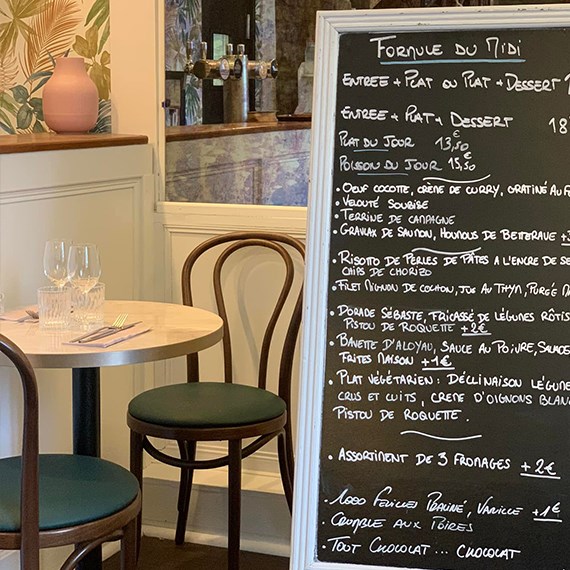 FORMULE DU MIDI
ENTREE + PLAT OU PLAT + DESSERT
ENTREE + PLAT + DESSERT 18
PLAT DU JOUR 13,50 €
POISSON DU JOUR 15,50 €
• OEUF COCOTTE, CRÈME DE CURRY, GRATINÉ AU
• VELOUTÉ SOUBISE
• TERRINE DE CAMPAGNE
• GRAVLAX DE SAUMON, HOUMOUS DE BETTERAVE
• RISOTTO DE PERLES DE PÂTES A L'ENCRE DE
CHIPS DE CHORIZO
• FILET MIGNON DE COCHON, JUS AU THYM,
• DORADE SÉBASTE, FRICASSÉ DE LÉGUMES
PISTOU DE ROQUETTE +2€
• BAVETTE D'ALOYAU, SAUCE AU POIVRE,
FRITES MAISON +1€
• PLAT VÉGÉTARIEN : DÉCLINAISON
CRUS ET CUITS, CRÈME D'OIGNONS
PISTOU DE ROQUETTE .
• ASSORTIMENT DE 3 FROMAGES +2€
. 1000 FEUILLES PRALINÉ, VANILLE +1€
• CRUMBLE AUX POIRES
• TOUT CHOCOLAT ... CHOCOLAT